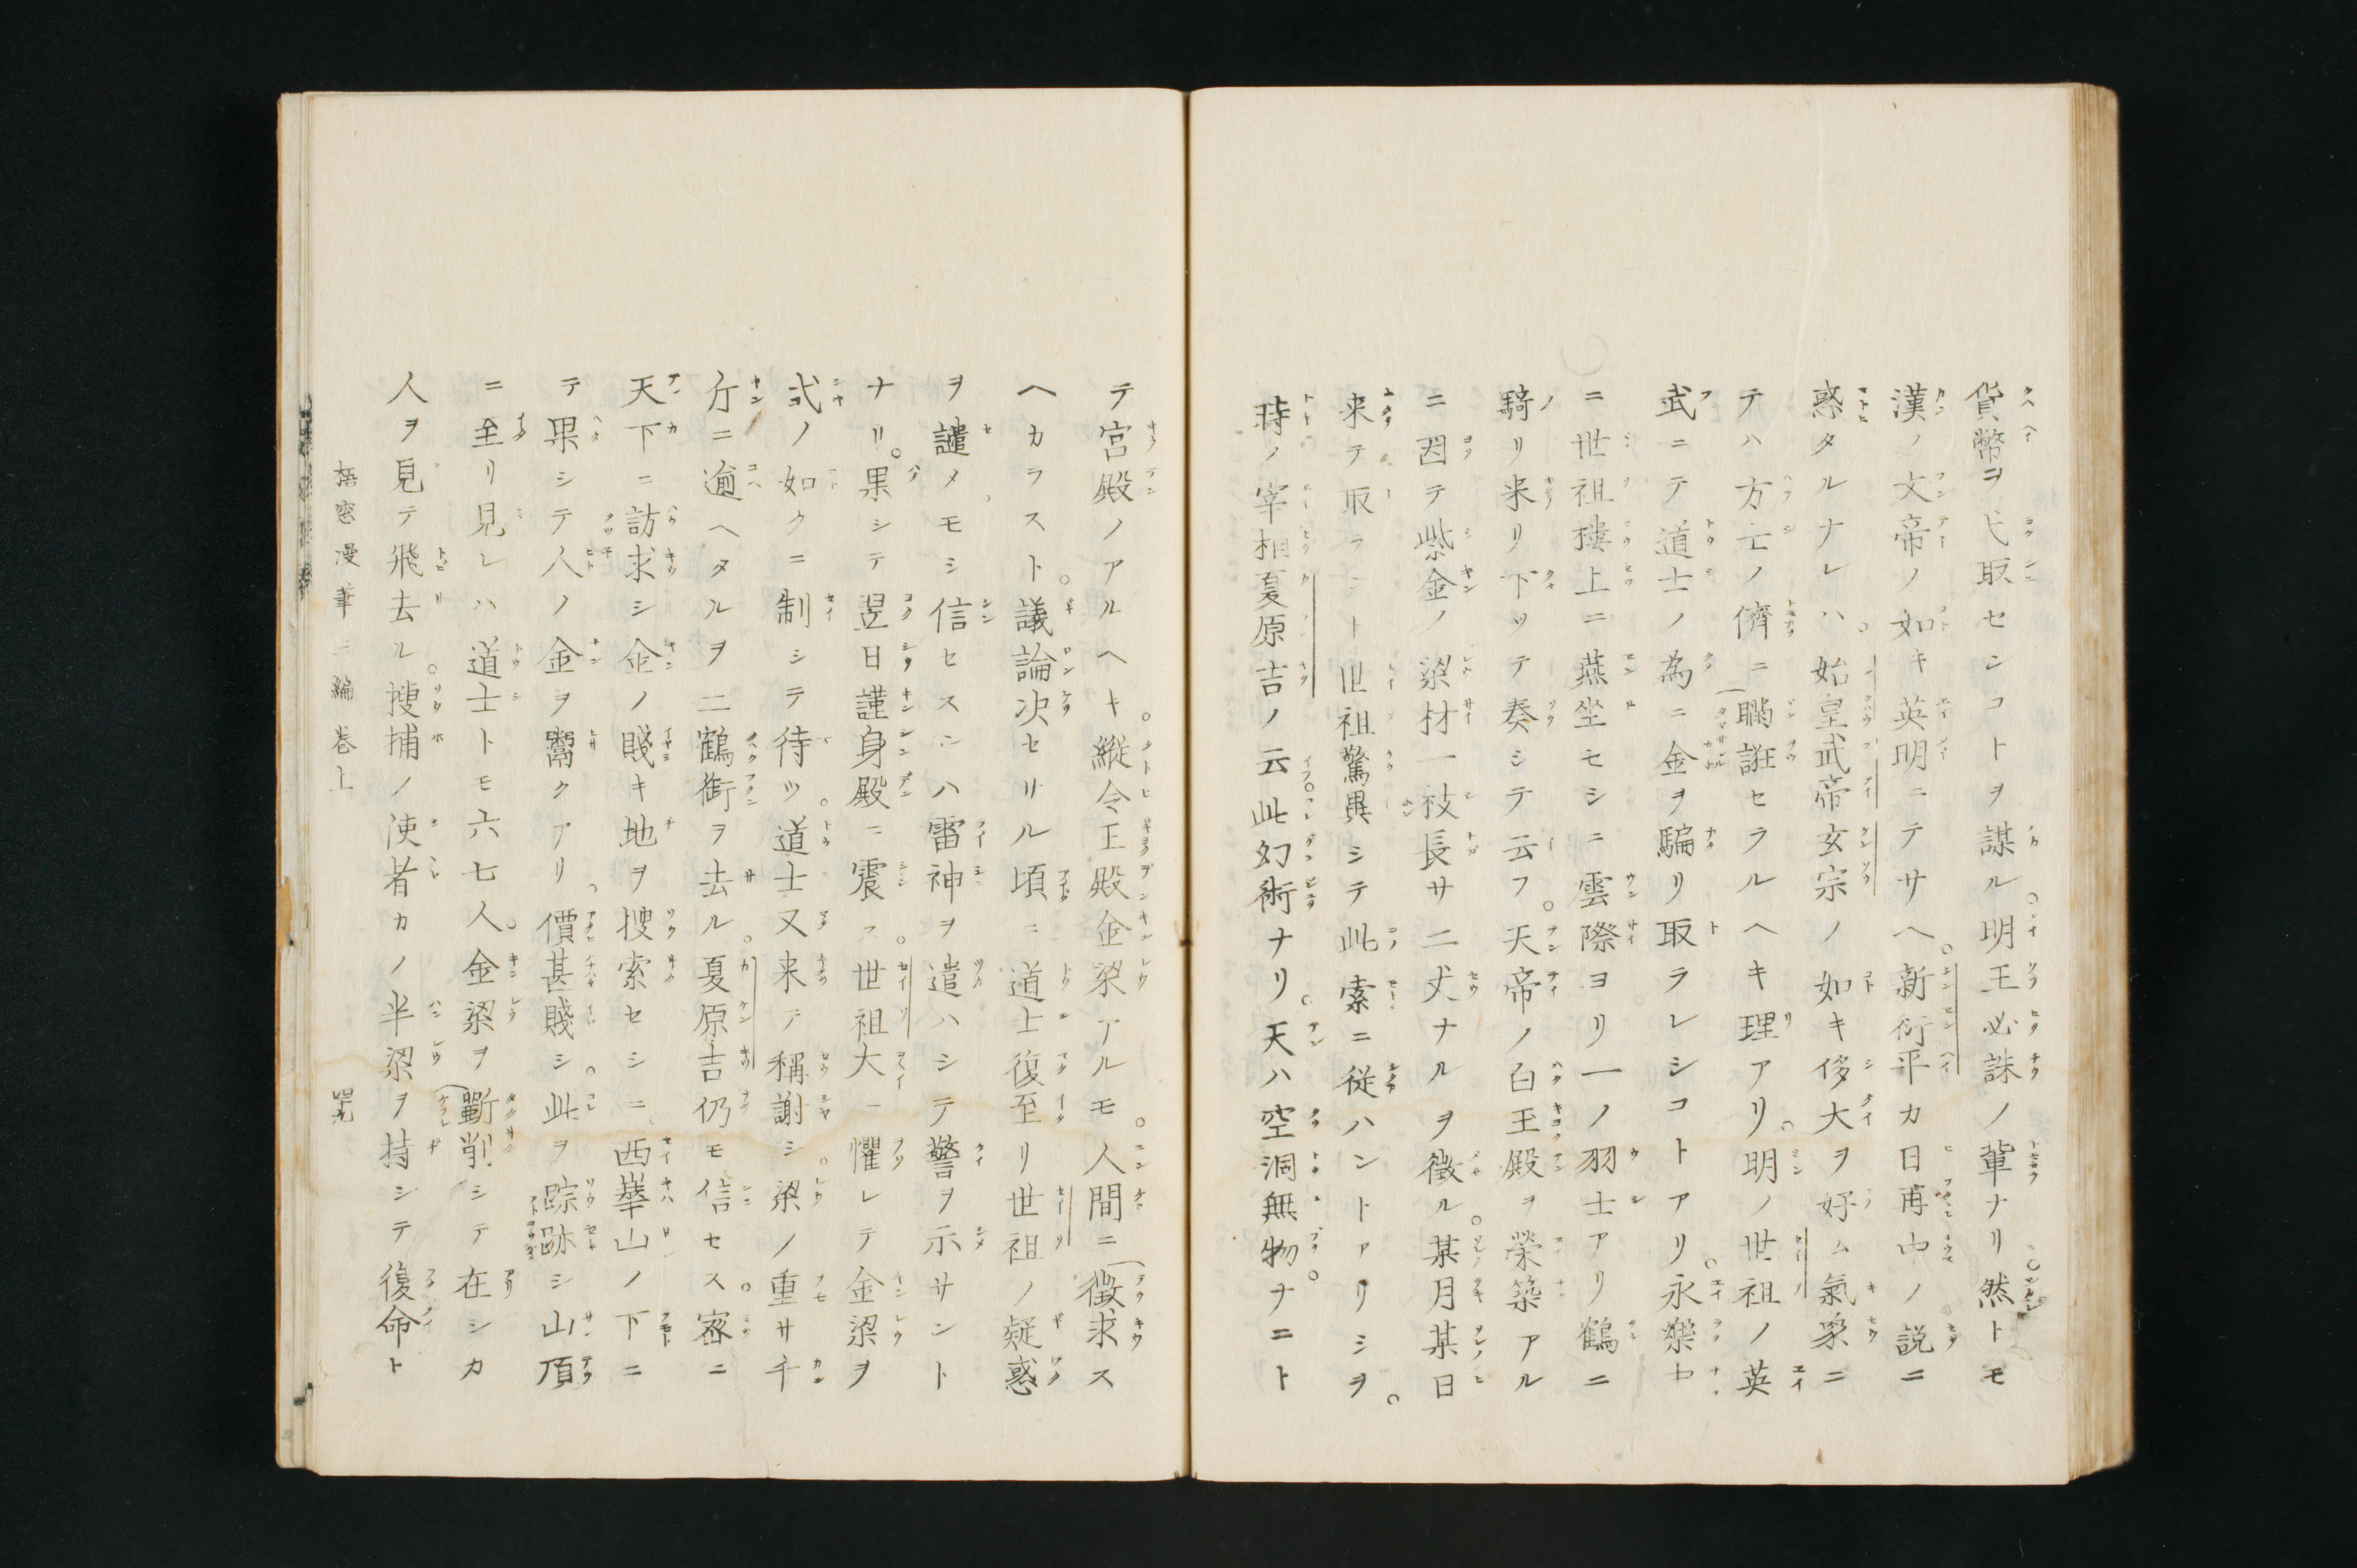 貨幣ヲ弋取センコトヲ謀ル。明王必誅ノ輩ナリ。然トモ
漢ノ文帝ノ如キ英明ニテサヘ。新衍平カ日再中ノ説ニ
惑タルナレハ。始皇武帝玄宗ノ如キ侈大ヲ好ム氣象ニ
テハ方士ノ儕ニ瞞誑セラルヘキ理アリ。明ノ世祖ノ英
武ニテ道士ノ為ニ金ヲ騙リ取ラレシコトアリ。永樂中
ニ世祖樓上ニ燕坐セシニ雲際ヨリ一ノ羽士アリ鶴ニ
騎リ来リ下ッテ奏シテ云フ。天帝ノ白玉殿ヲ榮築アル
ニ因テ紫金ノ梁材一枝長サ二丈ナルヲ徴ル。某月某日
来テ取ラント世祖驚異シテ此索ニ従ハントアリシヲ。
時ノ宰相夏原吉ノ云此幻術ナリ。天ハ空洞無物。ナニト
テ宮殿ノアルヘキ。縦令玉殿金梁アルモ。人間ニ徴求ス
ヘカラスト。議論决セリル頃ニ道士復至リ世祖ノ疑惑
ヲ譴メモシ信セスンハ雷神ヲ遣ハシテ警ヲ示サント
ナリ。果シテ翌日謹身殿ニ震ス。世祖大ニ懼レテ金梁ヲ
弍ノ如クニ制シテ待ツ。道士又来テ稱謝シ。梁ノ重サ千
斤ニ逾ヘタルヲ二鶴銜ヲ去ル。夏原吉仍モ信セス。密ニ
天下ニ訪求シ金ノ賤キ地ヲ捜索セシニ西華山ノ下ニ
テ果シテ人ノ金ヲ鬻クアリ。價甚賤シ。此ヲ踪跡シ山頂
ニ至リ見レハ道士トモ六七人。金梁ヲ斵削シテ在シカ
人ヲ見テ飛去ル。捜捕ノ使者カノ半梁ヲ持シテ復命ト
梧窓漫筆 二編 巻上 四九